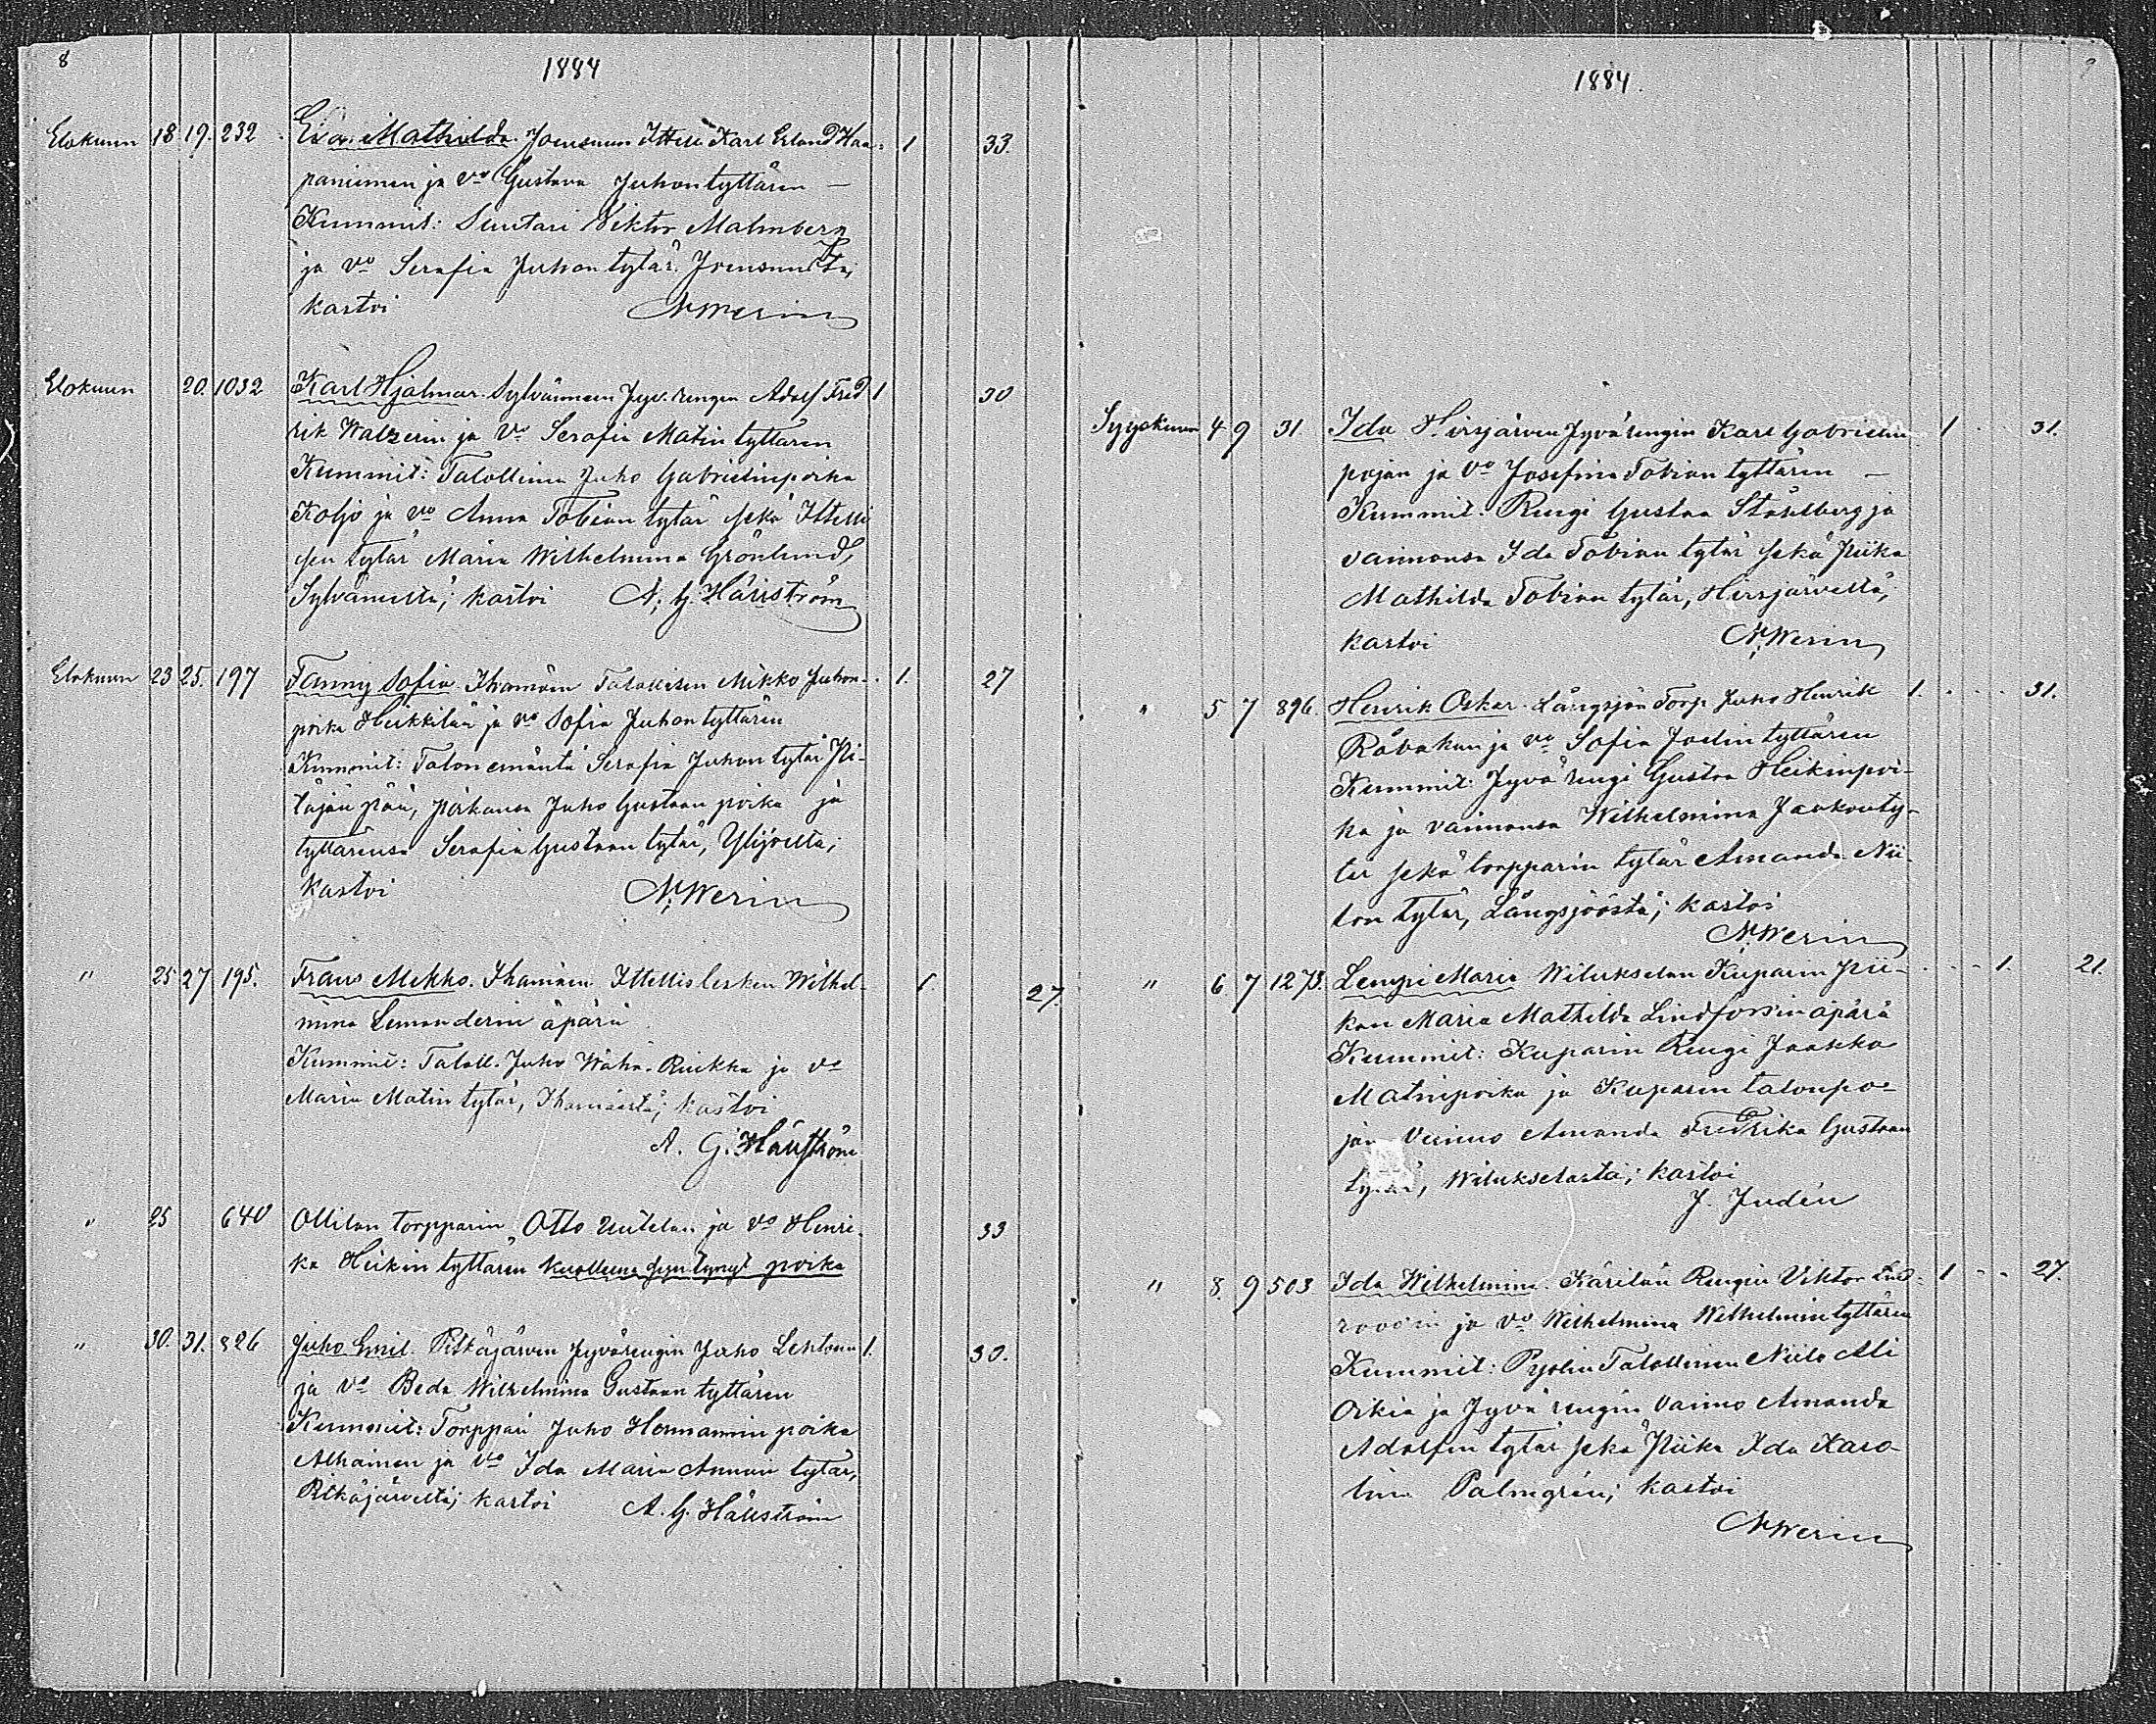 8
1884
Elokuun 18 19. 232 Eva Mathilda. Joensuun Ittell. Karl Erland Haa- 1 33.
paniemen ja vo Gustava Juhontyttären —
Kummit: Suutari Viktor Malmberg
ja vo Serafia Juhontytär. Joensuusta;
kastoi N. Werin
Elokuun 20. 1032 Karl Hjalmar. Sylvänneen Jyv. rengin Adolf Fred- 1 30
rik Walzerin ja vo Serafia Matintyttären
Kummit: Talollinen Juho Gabrielinpoika
Koljo ja vo Anna Tobiantytär sekä Ittelli-
sen tytär Maria Wilhelmina Grönlund,
Sylvänneltä; kastoi A. G. Hällström
Elokuun 23 25. 197 Fanny Sofia. Ihamäen Talollisen Mikko Juhon- 1. 27
poika Heikkilän ja vo Sofia Juhontyttären
Kummit: Talon emäntä Serafia Juhontytär Pi-
täjän pää, poikansa Juho Gustaanpoika ja
tyttärensä Serafia Gustaantytär, Ylijoelta;
kastoi N. Werin
" 25 27 195. Frans Mikko. Ihamäen Ittellislesken Wilhel- 1. 27.
mina Lemanderin äpärä
Kummit: Taloll. Juho Wäha-Ruikka ja vo
Maria Matintytär, Ihamäestä; kastoi
A. G. Hällström
" 25 640 Ollilan torpparin Otto Uutelan ja vo Henri- 33
ka Heikintyttären kuolleena syntynyt poika
" 30. 31. 826 Juho Emil. Pitkäjärven Jyvärengin Juho Lehtosen 1. 30.
ja vo Beda Wilhelmina Gustaantyttären
Kummit: Torppari Juho Hermanninpoika
Alhainen ja vo Ida Maria Annantytär,
Pitkäjärveltä; kastoi A. G. Hällström
9
1884.
Syyskuun 4 9 31 Ida Hirsjärven Jyvärengin Karl Gabrielin 1 31.
pojan ja vo Josefina Tobiantyttären —
Kummit. Rengi Gustaa Ståhlberg ja
vaimonsa Ida Tobiantytär sekä Piika
Mathilda Tobiantytär, Hirsjärveltä;
kastoi N. Werin
" 5 7 896. Henrik Oskar. Långsjön Torp. Juho Henrik 1. 31.
Råvakan ja vo Sofia Joelintyttären
Kummit: Jyvärengi Gustaa Heikinpoi-
ka ja vaimonsa Wilhelmina Jaakonty-
tär sekä torpparin tytär Amanda Nii-
lon tytär, Långsjöostä; kastoi
N. Werin
" 6 7 1273. Lempi Maria Wilukselan Kuparin Pii- 1. 21.
kan Maria Mathilda Lindforsin äpärä
Kummit: Kuparin Rengi Jaakko
Matinpoika ja Kuparin talonpo-
jan Vaimo Amanda Fredrika Gustaan
tytär, Wilukselasta; kastoi
J. Judén
" 8. 9 503 Ida Wilhelmina. Kärilän Rengin Viktor Lind- 1 27.
roosin ja vo Wilhelmina Wilhelmintyttären
Kummit: Pyölin Talollinen Niilo Ali
Oikia ja Jyvärengin vaimo Amanda
Adolfin tytär sekä Piika Ida Karo-
lina Palmgrén; kastoi
N. Werin